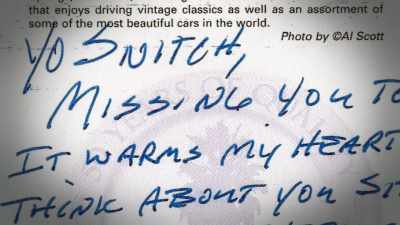 that enjoys driving vintage classics as well as an assortment of
some of the most beautiful cars in the world.
Photo by ©Al Scott
YO SNITCH,
MISSING YOU TO
IT WARMS MY HEART
THINK ABOUT YOU SIT
YEARS OF QUALITY